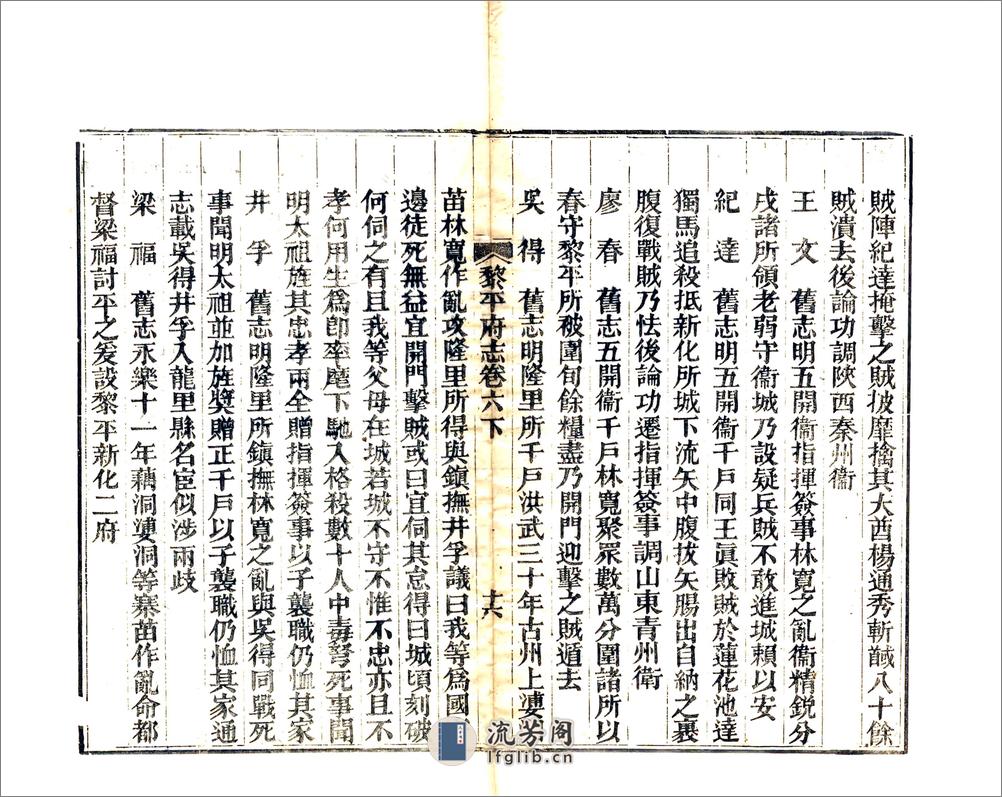 賊陣紀達掩擊之賊披靡擒其大酋楊通秀斬馘八十餘
賊潰去後論功調陝西秦州衞
王　文　舊志明五開衞指揮簽事林寬之亂衞精銳分
戌諸所領老弱守衞城乃設疑兵賊不敢進城賴以安
紀　達　舊志明五開衞千戶同王眞敗賊於蓮花池達
獨馬追殺抵新化所城下流矢中腹拔矢腸出自納之裹
腹復戰賊乃怯後論功遷指揮簽事調山東青州衛
廖　春　舊志五開衞千戶林寬聚眾數萬分圍諸所以
春守黎平所被圍旬餘糧盡乃開門迎擊之賊遁去
吳　得　舊志明隆里所千戶洪武三十年古州上婆洞
黎平府志卷六下
十六
苗林寬作亂攻隆里所得與鎭撫井孚議曰我等爲國守
邊徒死無益宜開門擊賊或曰宜伺其怠得曰城頃刻破
何伺之有且我等父母在城若城不守不惟不忠亦且不
孝何用生爲卽率麾下馳入格殺數十人中毒弩死事聞
明太祖旌其忠孝兩全贈指揮簽事以子襲職仍恤其家
井　孚　舊志明隆里所鎭撫林寬之亂與吳得同戰死
事聞明太祖並加旌獎贈正千戶以子襲職仍恤其家通
志載吳得井孚入龍里縣名宦似涉兩歧
梁　福　舊志永樂十一年藕洞婆洞等寨苗作亂命都
督梁福討平之爰設黎平新化二府
流芳阁
lfglib.cn